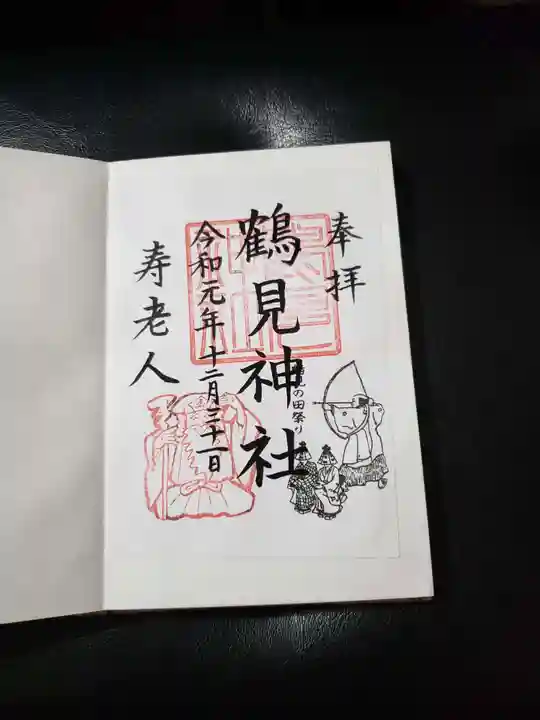 奉拝
鶴見の田祭り
鶴見神社
令和元年十二月三十一日
寿老人